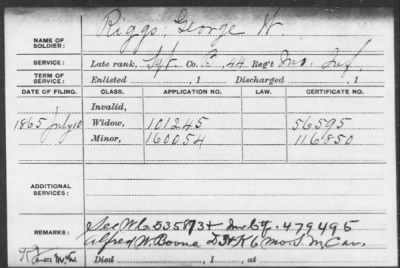 NAME OF SOLDIER: Riggs, George W.
SERVICE: Late rank, Sgt. Co. C. 44. Reg't Ind. Inf.
TERM OF SERVICE: Enlisted , 1 Discharged , 1
DATE OF FILING. CLASS. APPLICATION NO. LAW. CERTIFICATE NO.
Invalid,
1865 July 10 Widow, 101245 56595
Minor, 160054 116850
ADDITIONAL SERVICES:
REMARKS: See W.C. 535873 + Inv. Ctf. 479495
Alfred W. Boone D 3 + K 6 Mo. S. M. Cav.
Died , 1 , at